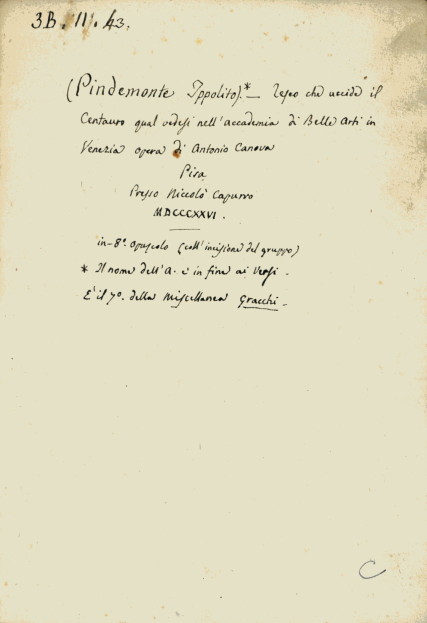 3B. 11. 43.
(Pindemonte Ippolito).* — Teseo che uccide il
Centauro qual vedesi nell'accademia di Belle Arti in
Venezia opera di Antonio Canova
Pisa
Presso Niccolò Capurro
MDCCCXXVI.
in-8º. opuscolo (coll'incisione del gruppo)
* Il nome dell'A. è in fine ai Versi -
E' il 7º. della Miscellanea Gracchi -
C